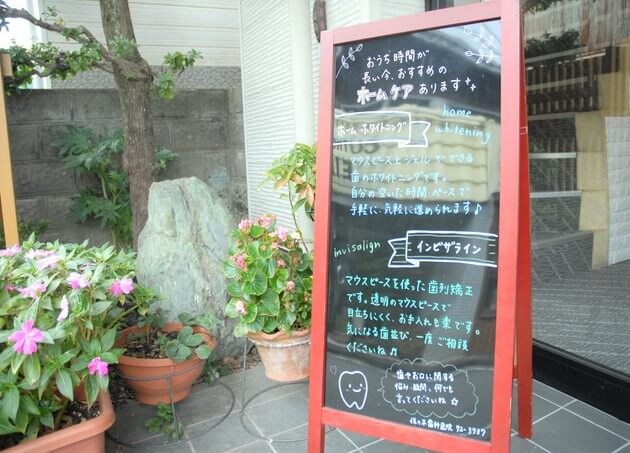 おうち時間が
長い今、おすすめの
ホームケアあります
ホームホワイトニング
home
whitening
マウスピースとジェルでできる
歯のホワイトニングです。
自分の空いた時間・ペースで
手軽に、気軽に進められます♪
invisalign
インビザライン
マウスピースを使った歯列矯正
です。透明のマウスピースで
目立ちにくく、お手入れも楽です。
気になる歯並び、一度ご相談
くださいね♫
歯やお口に関する
悩み・疑問、何でも
言ってくださいね☆
佐々木歯科医院 92-3737